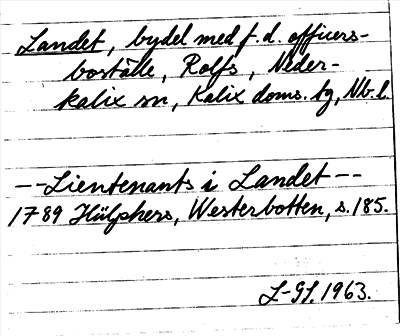 Landet, bydel med f.d. officers-
boställe, Rolfs, Neder-
kalix sn, Kalix doms. tg, Nb.l.
--Lieutenants i Landet--
1789 Hülphers, Westerbotten, s. 185.
1963.